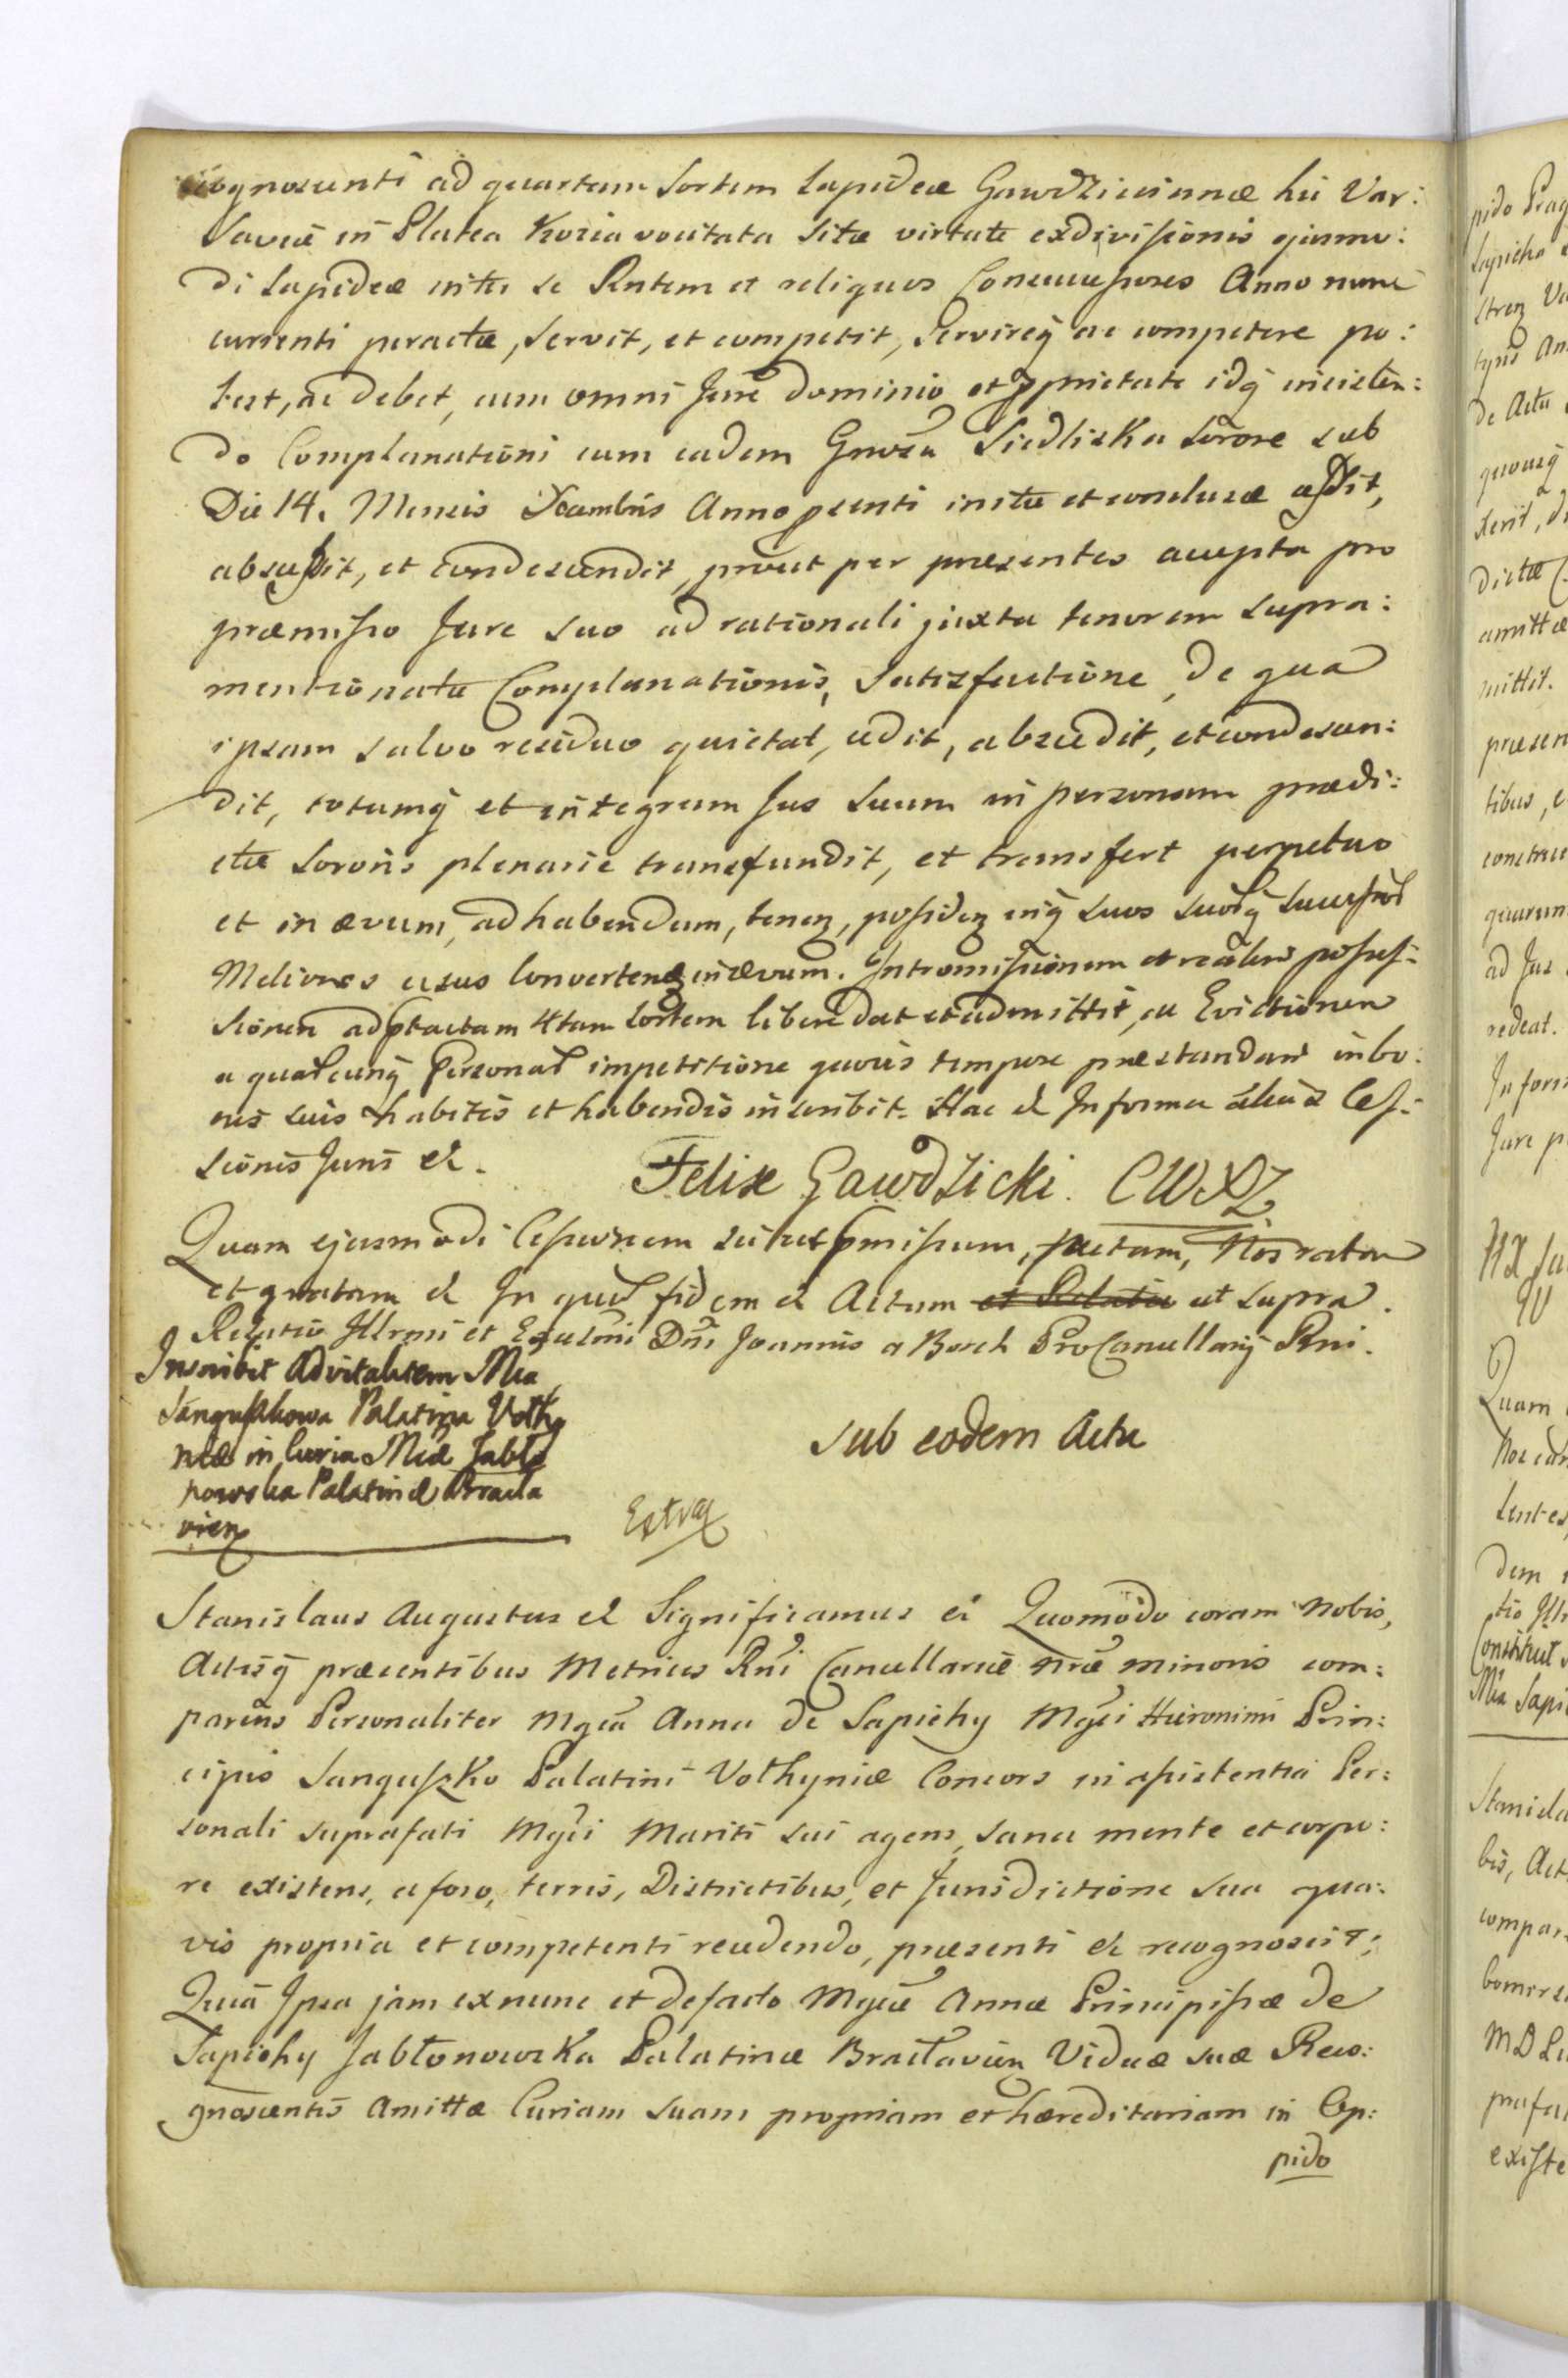 cognoscenti ad quartam Sortem Lapideæ Gawdzicianæ hic Var:
saviæ in Platea Kozia vocitata sitæ virtute exdivisionis ejusmo:
di Lapideæ inter se Rntem et reliquos Consuccessores Anno nunc
currenti peractæ, servit, et competit, servireq ac competere po:
test, ac debet, cum omni Jure dominio et pprietate idq insisten:
do Complanationi cum eadem Gnosa Siedliska Sorore sub
Die 14. Mensis Xcembris Anno psenti initæ et conclusæ cessit,
abscessit, et condescendit, prout per præsentes accepta pro
præmisso Jure suo ad rationali juxta tenorem supra:
mentionatæ Complanationis, Satisfactione, de qua
ipsam salvo residuo quietat, cedit, abscedit, et condescen:
dit, totumq et integrum Jus suum in personam prædi:
ctæ Sororis plenarie transfundit, et transfert perpetuo
et in ævum, ad habendum, tenen, possiden inq suos suorq successor
Meliores usus Converten in ævum. Intromissionem et realem posses:
sionem ad ptactam 4tam Sortem libere dat et admittit, ac Evictionem
a quarcunq Personar impetitione quovis tempore præstandam in bo:
nis suis habitis et habendis inscribit. Hac et In forma Ces:
sionis Juris et.
Felix Gawdzicki CWXZ
Quam ejusmodi Cessionem sicut pmissum, factam, Nos ratam
et gratam et In quor fidem et Actum et Relatio ut supra.
Relatio Illrmi et Excellmi Dni Joannis a Borch ProCancellarij Rni.
Inscribit Advitalitatem Mca
Sanguszkowa Palatina Volhy
niæ in Curia Mcæ Jabło
nowska Palatinæ Bracla
vien
sub eodem Actu
Extra
Stanislaus Augustus et Significamus et Quomodo coram Nobis,
Actisq præsentibus Metrices Rni Cancellariæ Nræ minoris com:
parens Personaliter Mgca Anna de Sapiehy Mgci Hieronimi Prin:
cipis Sanguszko Palatini Volhyniæ Consors in assistentia Per:
sonali suprafati Mgci Mariti sui agens, sana mente et corpo:
re existens, a foro, terris, Districtibus, et Jurisdictione sua qua:
vis propria et competenti recedendo, præsenti et recognoscit;
Quia Ipsa jam ex nunc et de facto Mgcæ Annæ Principissæ de
Sapiehy Jabłonowska Palatinæ Bracłavien Viduæ suæ Reco:
gnoscentis Amittæ Curiam suam propriam et hæreditariam in Op:
pido